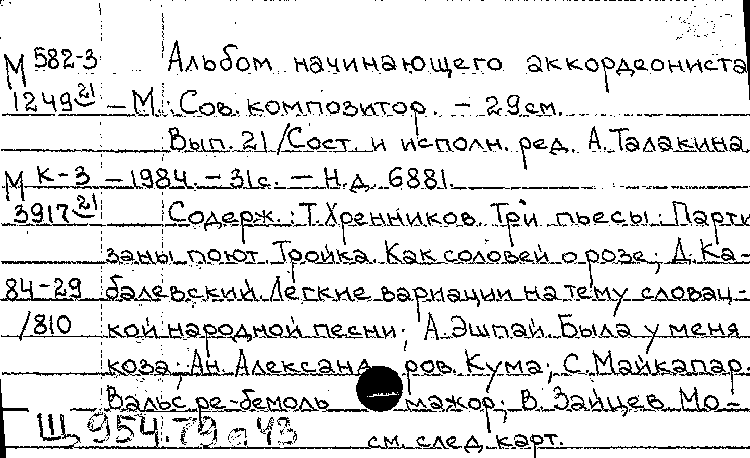 М 582-3 Альбом начинающего аккордеониста
1249 21 – М.: Сов. композитор. – 29 см.
Вып. 21 / Сост. и исполн. ред. А. Талакина
М К-3 – 1984. – 31 с. – Н.д. 6881.
3917 21 Содерж.: Т. Хренников. Три пьесы: Парти
заны поют. Тройка. Как соловей о розе; Д. Ка-
84-29 балевский. Легкие вариации на тему словац-
/810 кой народной песни; А. Эшпай. Была у меня
коза; Ан. Александ ров. Кума; С. Майкапар.
Вальс ре-бемоль мажор; В. Зайцев. Мо-
Щ 954.79 я 43 см. след. карт.